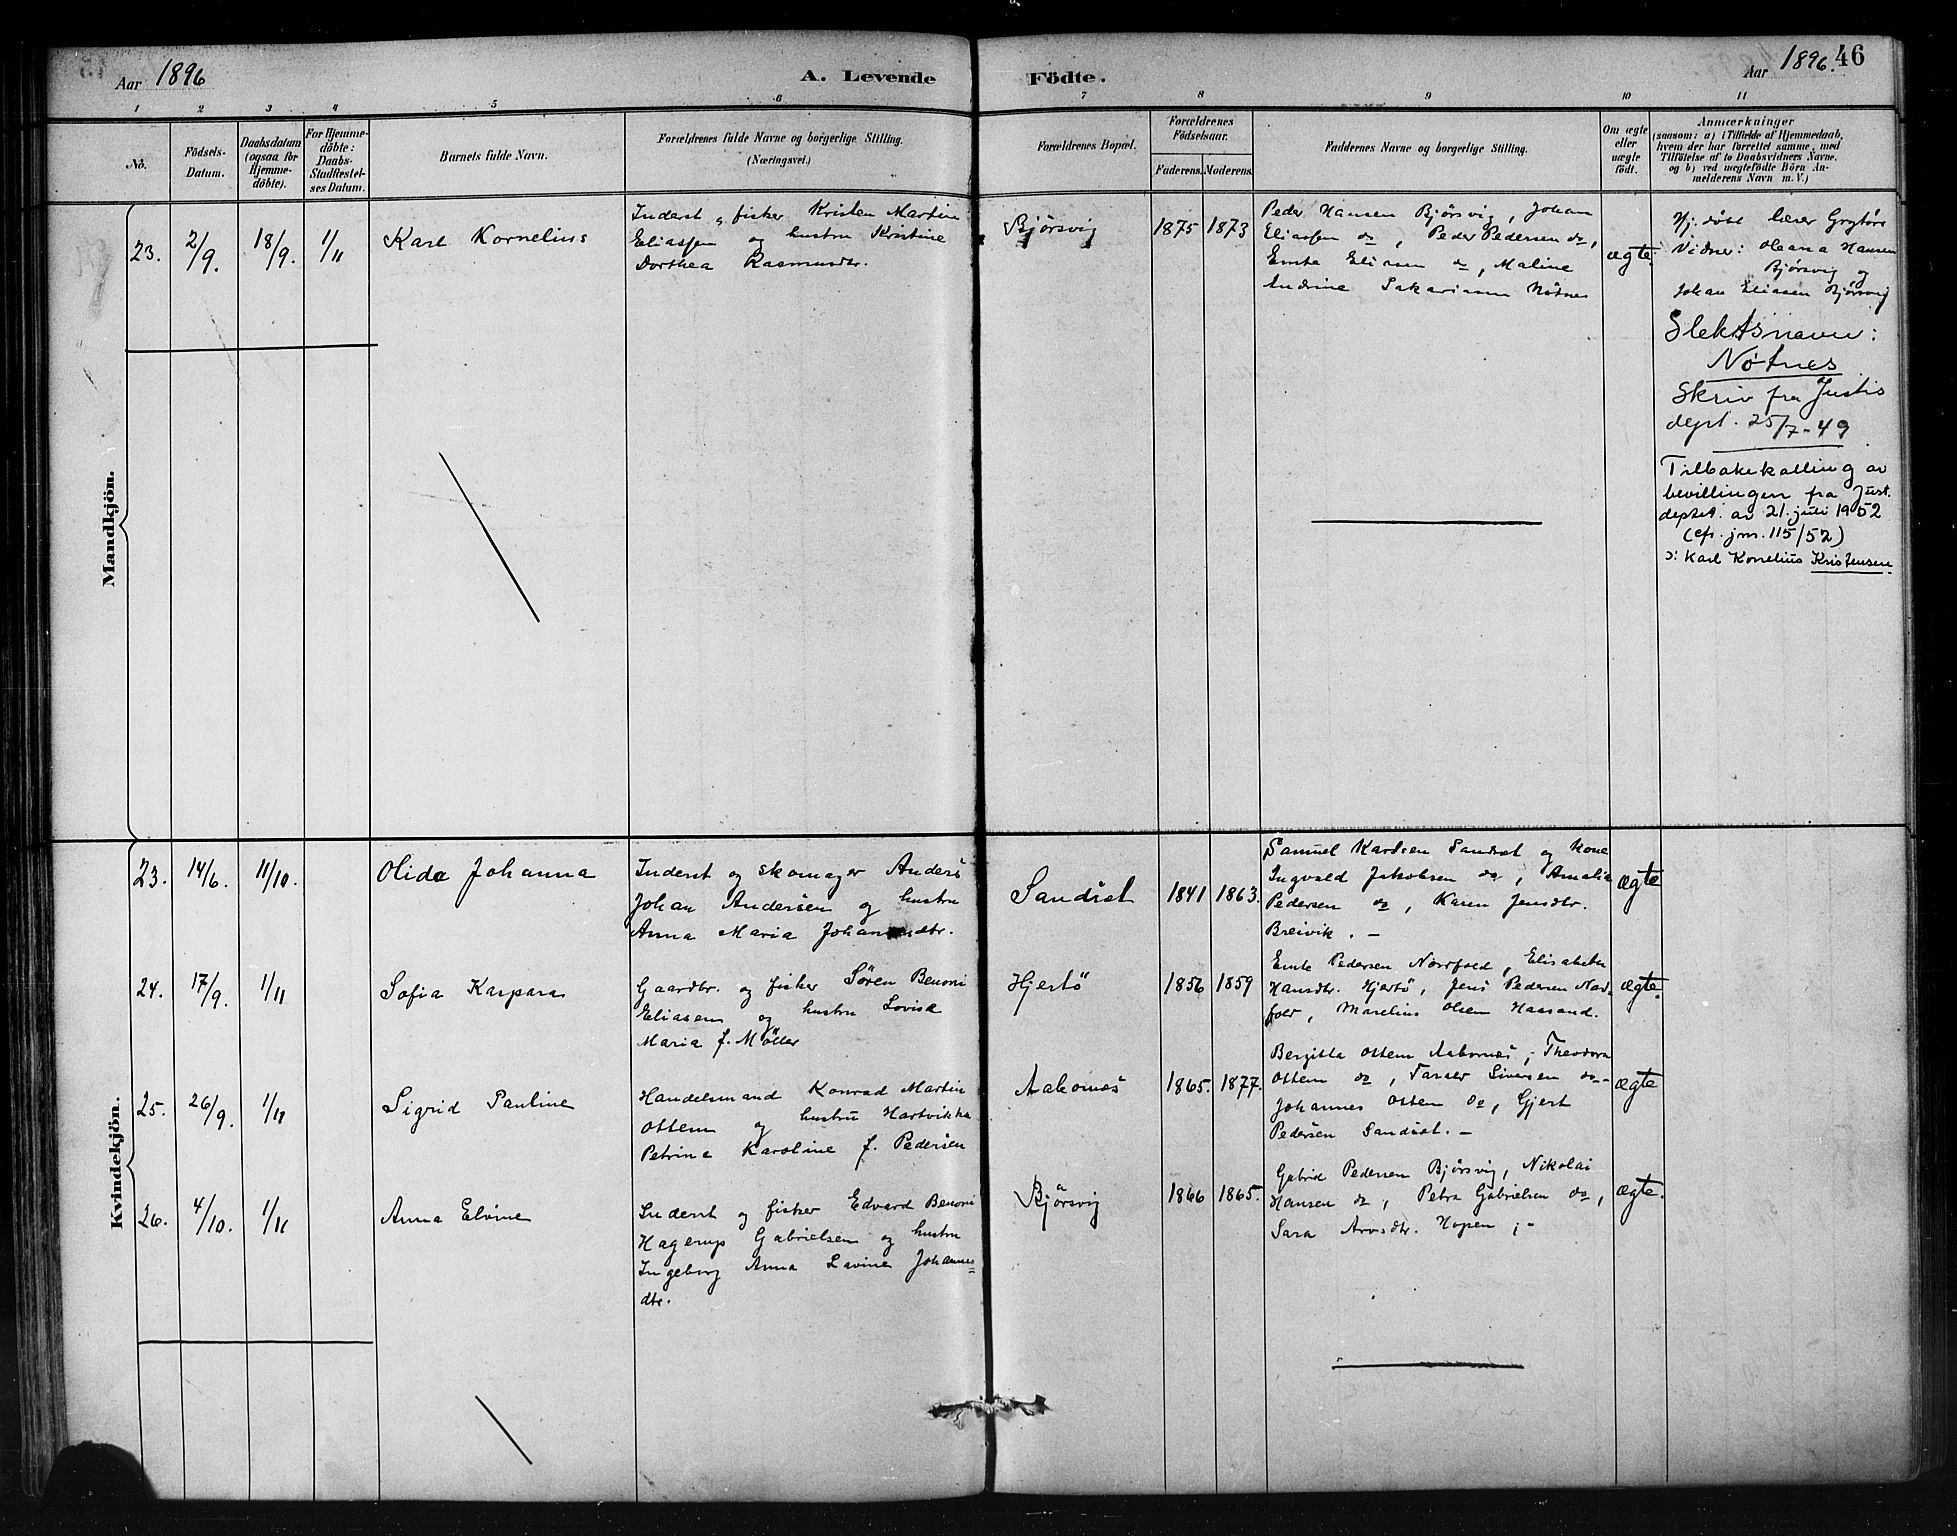 Aar 1896
A. Levende
Födte.
Aar 1896. 46
1 2 3 4 5 6 7 8 9 10 11
No.
Födsels-
Datum.
Daabsdatum
(ogsaa for
Hjemme-
döbte).
For Hjemme-
döbte:
Daabs-
Stadfæstel-
ses Datum.
Barnets fulde Navn.
Forældrenes fulde Navne og borgerlige Stilling.
(Næringsvei.)
Forældrenes Bopæl.
Forældrenes
Födselsaar.
Faderens. Moderens.
Faddernes Navne og borgerlige Stilling.
Om ægte
eller
uægte
födt.
Anmærkninger
(saasom: a) i Tilfælde af Hjemmedaab,
hvem der har forrettet samme, med
Tilföielse af to Daabsvidners Navne,
og b) ved uægtefödte Börn An-
melderens Navn m. V.)
Mandkjön.
23. 2/9. 18/9. 1/11 Karl Kornelius
Inderst, fisker Kristen Martin
Eliassen og hustru Kristine
Dorthea Rasmusdtr.
Bjørsvig 1875 1873
Peder Hansen Bjørsvig, Johan
Eliassen do, Peder Pedersen do,
Emte Eliasen do, Maline
Andrine Sakariasen Nötnes
ægte.
Hj. døbt lærer Grytør
Vidner: Oleana Hansen
Bjørsvig og
Johan Eliasen Bjørsvig
Slektsnavn:
Nøtnes
Skriv fra Justis
dept. 25/7-49
Tilbakekalling av
bevillingen fra Just.
deptet. av 21. juli 1952
(cfr. jnr. 115/52)
ɔ: Karl Kornelius Kristensen
Kvindekjön.
23. 14/6. 11/10. Olida Johanna
Inderst og skomager Anders
Johan Andersen og hustru
Anna Maria Johansdtr.
Sandset 1841 1863.
Samuel Karlsen Sandset og Kone
Ingvald Jakobsen do, Amalie
Pedersen do, Karen Jensdtr.
Breivik. -
ægte
24. 17/9. 1/11 Sofia Kaspara
Gaardbr. og fisker Søren Benoni
Eliasen og hustru Lovise
Maria f. Möller
Hjertö 1856 1859
Emte Pedersen Nordfold, Elisabeth
Hansdtr. Hjertö, Jens Pedersen Nord-
fold, Marelius Olsen Haasand.
ægte.
25. 26/9. 1/11 Sigrid Pauline
Handelsmand Konrad Martin
Ottem og hustru Hartvikka
Petrine Karoline f. Pedersen
Aabornes 1865. 1877.
Bergitta Ottem Aabornes, Theodora
Ottem do, Siversen do-
Johannes Ottem do, Gjert
Pedersen Sandset. -
ægte
26. 4/10. 1/11 Anna Elvine
Inderst og fisker Edvard Benoni
Hagerup Gabrielsen og hustru
Ingeborg Anna Lavine Johannes-
dtr.
Bjørsvig 1866 1865.
Gabriel Pedersen Bjørsvig, Nikolai
Hansen do, Petra Gabrielsen do,
Sara Arnsdtr. Hopen,-
ægte.